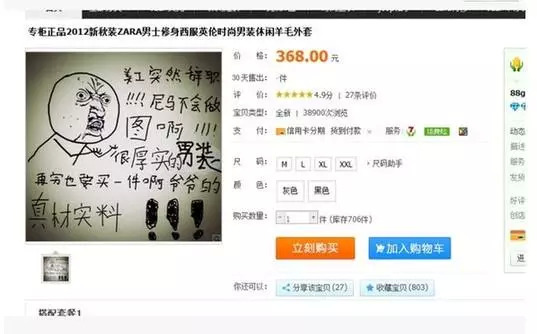 专柜正品2012新秋装ZARA男士修身西服英伦时尚男装休闲羊毛外套
美工突然辞职
!!!! 尼马不会做
图啊!!!
很厚实的男装
再穷也要买一件啊爷爷的
真材实料!!!
价 格: 368.00 元
30天售出: -件
评 价: ★★★★★ 4.9分 | 27条评价
宝贝类型: 全新 | 38900次浏览
支 付: 信用卡分期 货到付款 服务: 7
尺 码: M L XL XXL 尺码助手
颜 色: 灰色 黑色
购买数量: - 1 + 件 (库存706件)
立刻购买 加入购物车
你还可以: 分享该宝贝 (27) ★ 收藏宝贝 (803)
搭配套餐1
88g
动态
描述
服务
发货
创店
进